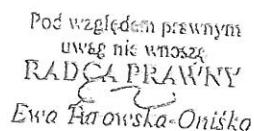 Pod względem prawnym
uwag nie wnoszę
RADCA PRAWNY
Ewa -Oniśko